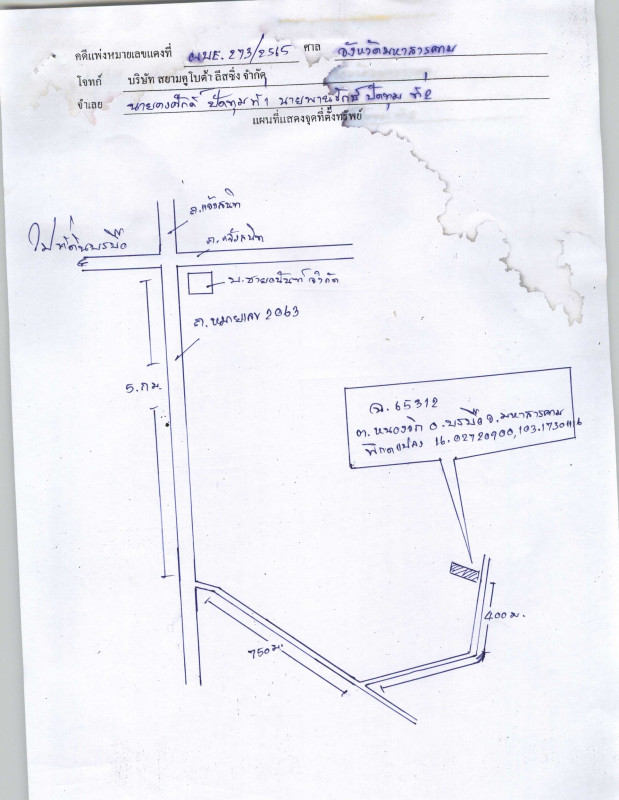 คดีแพ่งหมายเลขแดงที่ ผบE. 273/2565 ศาล จังหวัดมหาสารคาม
โจทก์ บริษัท สยามคูโบต้า ลีสซิ่ง จำกัด
จำเลย ปัดทุม ที่ 1 ปัดทุม ที่ 2
แผนที่แสดงจุดที่ตั้งทรัพย์
ถ.แจ้งสนิท
ไปที่ดินบรบือ
ถ.แจ้งสนิท
จำกัด
ถ.หมายเลข 2063
5.กม.
ฉ.65312
ต.หนองจิก อ.บรบือ จ.มหาสารคาม
พิกัดแปลง 16.02720900,103.1730
400 ม.
750 ม.